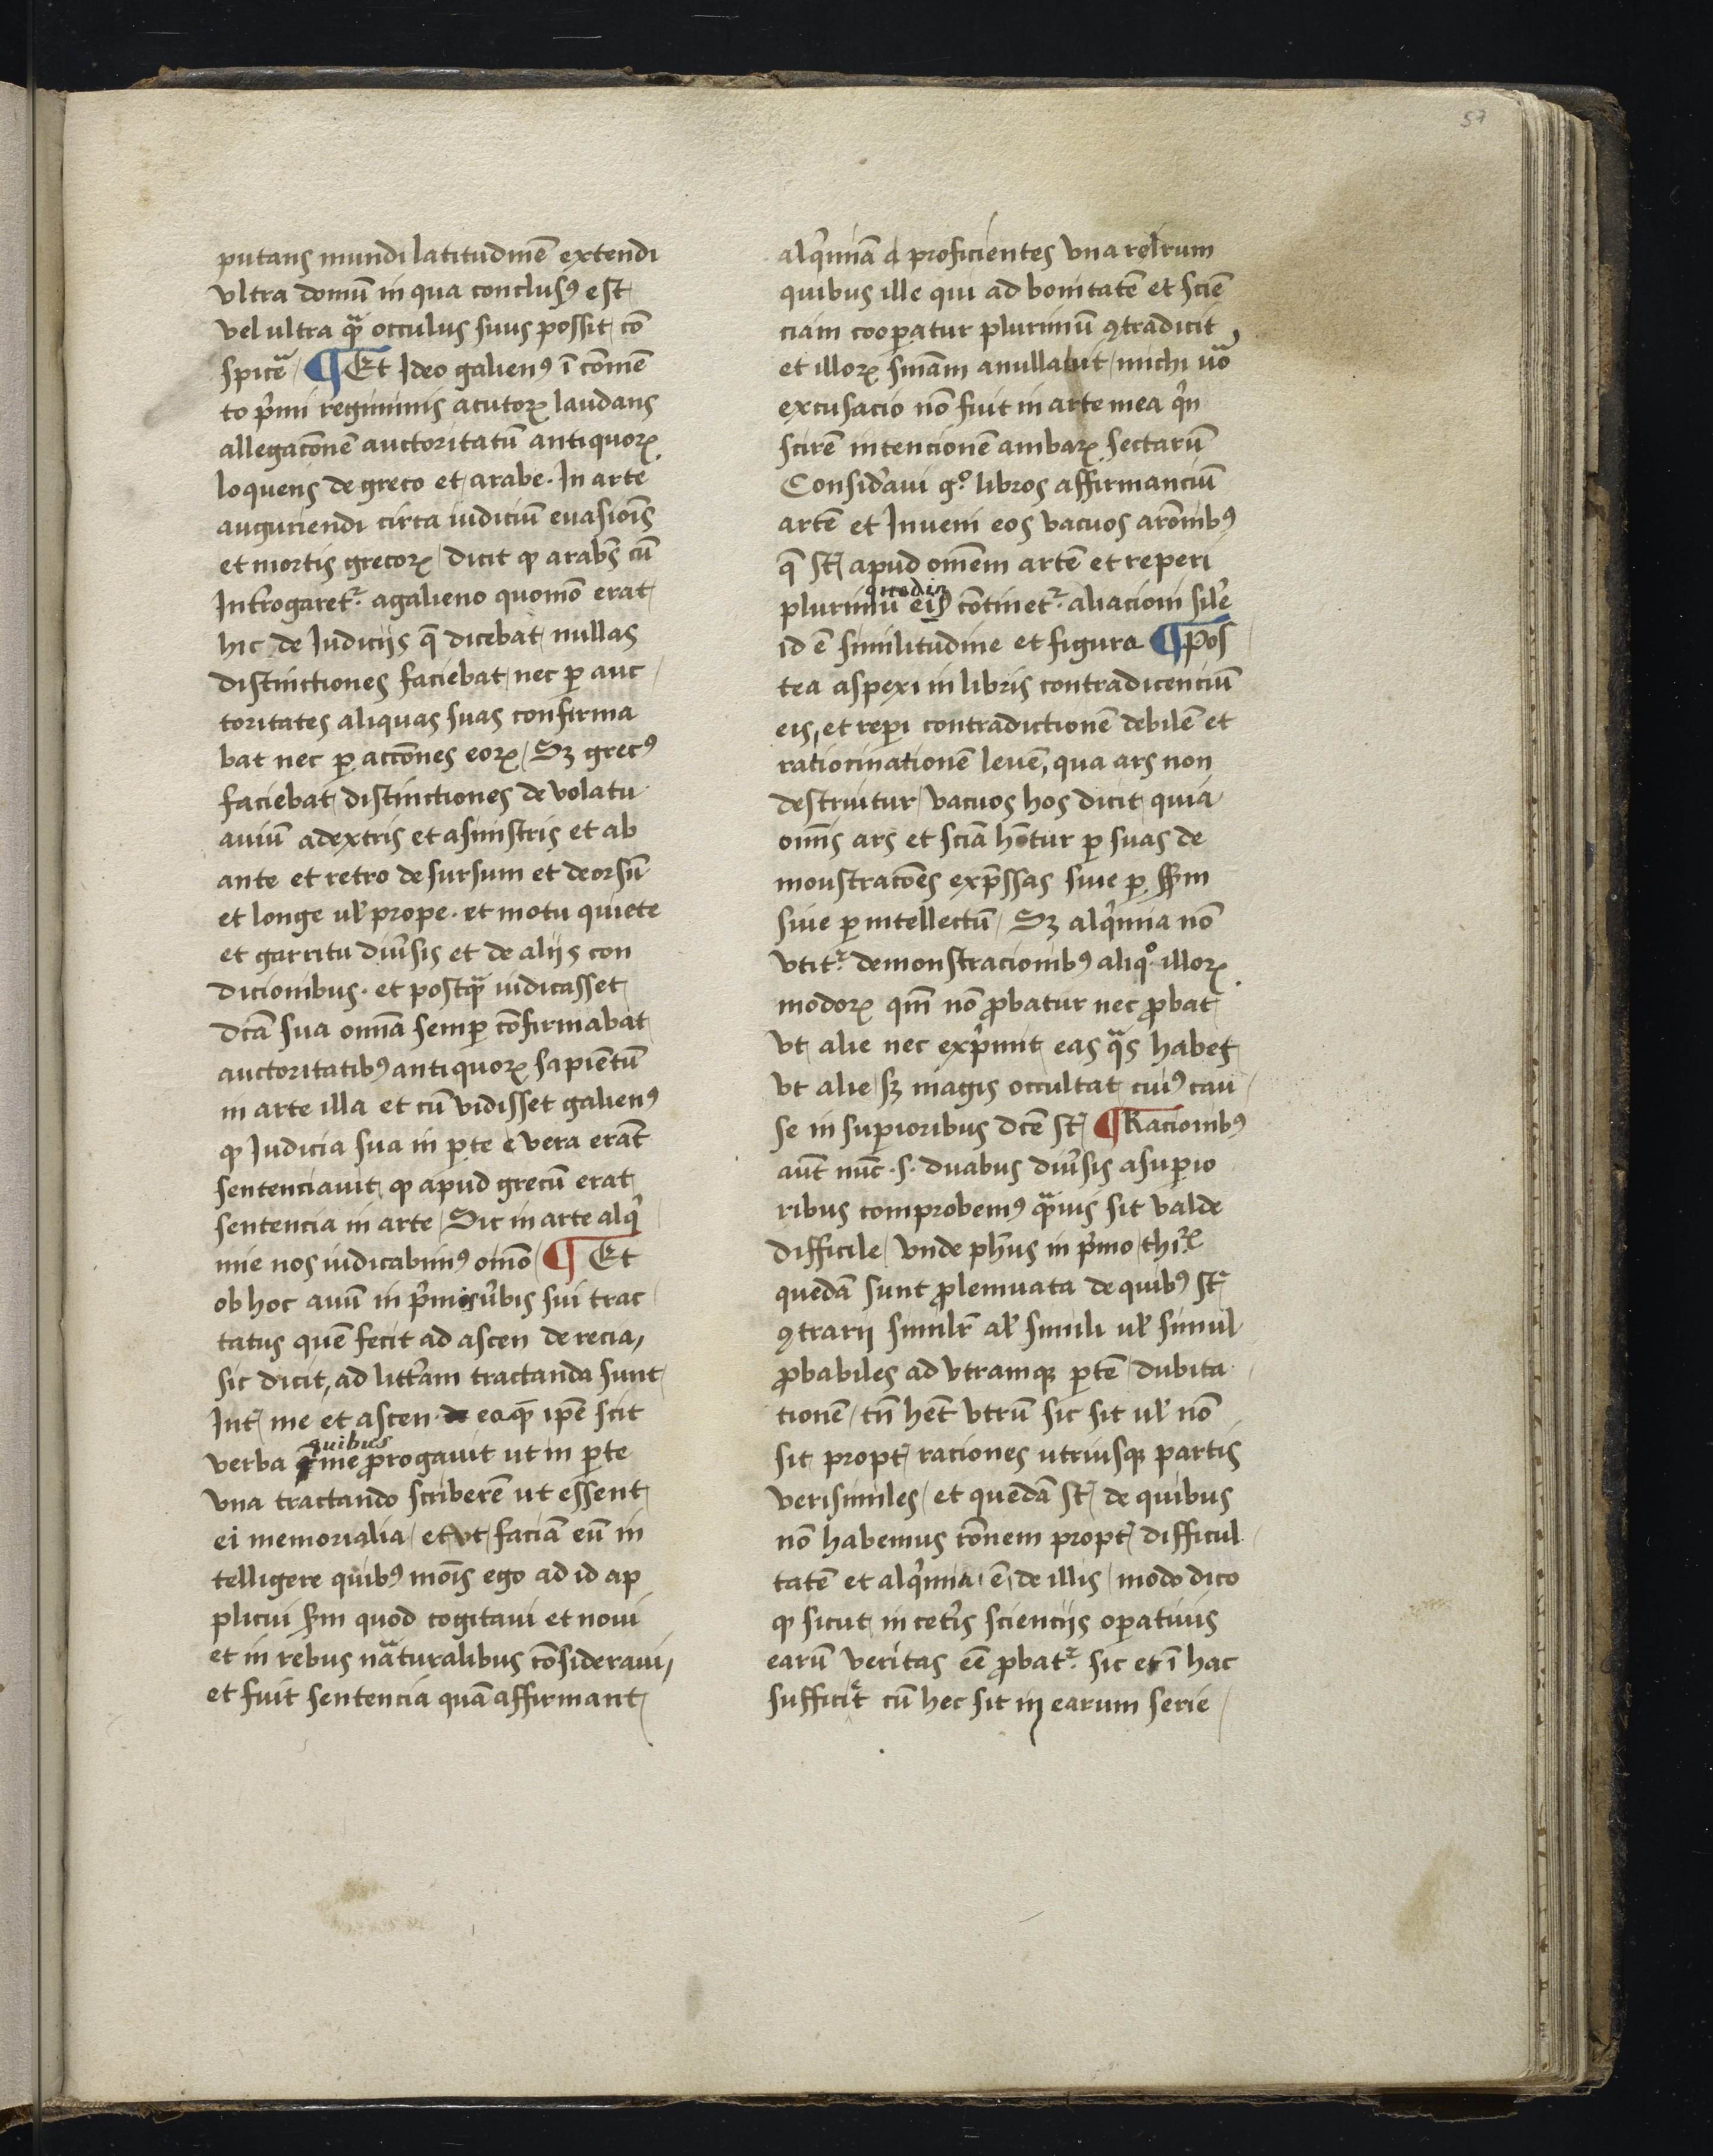 57
putans mundi latitudinē extendi
vltra domū in qua conclusꝰ est
vel ultra qᷓ occulus suus possit cō
spicē ¶ Et Ideo galienꝰ ī cōmē
to pͥmi regiminis acutoꝝ laudans
allegacōnē auctoritatū antiquoꝝ
loquens de greco et arabe. In arte
auguriendi circa iudiciū euasiōis
et mortis grecoꝝ dicit ꝙ arabs̄ cū
Introgaretᷣ agalieno quomō erat
hic de Iudicijs q̄ dicebat nullas
distinctiones faciebat nec ꝑ auc
toritates aliquas suas confirma
bat nec ꝑ accōnes eoꝝ Sꝫ grecꝰ
faciebat distinctiones de volatu
auiū adextris et asinistris et ab
ante et retro de sursum et deorsū
et longe ul̄ prope. et motu quiete
et garritu diu̓sis et de alijs con
dicionibus. et postqᷓ iudicasset
dcā sua omnia semꝑ cōfirmabat
auctoritatibꝰ antiquoꝝ sapientū
in arte illa et cū vidisset galienꝰ
ꝙ Iudicia sua in ꝑte vera erāt
sentenciauit ꝙ apud grecū erat
sentencia in arte Sic in arte alqͥ
mie nos iudicabimꝰ omō ¶ Et
ob hoc auū in pͥmis u̓bis sui trac
tatus quē fecit ad ascen de recia
sic dicit, ad litt̓am tractanda sunt
Int̓ me et ascen eaqꝫ ip̄e scit
verba quibus me ꝓrogauit ut in ꝑte
vna tractando scriberē ut essent
ei memorialia et vt faciā eū in
telligere quibꝰ mōis ego ad id ap
plicui ẜm quod cogitaui et noui
et in rebus nāturalibus cōsideraui
et fuit sentencia quā affirmant
alqͥmiā proficientes vna rerum
quibus ille qui ad bonitatē et sciē
ciam cooꝑatur plurimū ꝯtradicit
et illoꝝ sniām anullauit michi uō
excusacio nō fuit in arte mea qͥn
scirē intencionē ambaꝝ sectarū
Consid̓aui gͦ libros affirmanciū
artē et Inueni eos vacuos arōnibꝰ
q̄ st̄ apud omēm artē et reperi
plurimū quod in eis cōtinetᷣ. aliacioni sile
id ē similitudine et figura ¶ Pos
tea aspexi in libris contradicenciū
eis, et reꝑi contradictionē debilē et
ratiocinationē leuē, qua ars non
destruitur vacuos hos dicit quia
omīs ars et scīa hētur ꝑ suas de
monstracōes exp̄ssas siue ꝑ ẜm
siue ꝑ intellectū Sꝫ alqͥmia nō
vtitᷣ demonstracionibꝰ aliqͦ illoꝝ
modoꝝ qm̄ nō ꝓbatur nec ꝓbat
vt alie nec expͥmit eas qᷓs habet
vt alie sꝫ magis occultat cuiꝰ cau
se in suꝑioribus dcē st̄ ¶ Racionibꝰ
aut̄ nūc .s. duabus diu̓sis asuꝑio
ribus comprobemꝰ qᷓuis sit valde
difficile vnde ph̄us in pͥmo thiꝝ
quedā sunt ꝓlemuata de quibꝰ st̄
ꝯtrarij simil̄r al̄ simili ul̄ simul
ꝓbabiles ad vtramqꝫ ꝑtē dubita
tionē tn̄ hēt vtrū sic sit ul̄ nō
sit propt̓ raciones utriusqꝫ partis
verisimiles et quedā st̄ de quibus
nō habemus rōnem propt̓ difficul
tatē et alqͥmia ē de illis modo dico
ꝙ sicut in cet̓is sciencijs oꝑatiuis
earū veritas eē ꝓbatᷣ. sic et ī hac
sufficit cū hec sit in earum serie